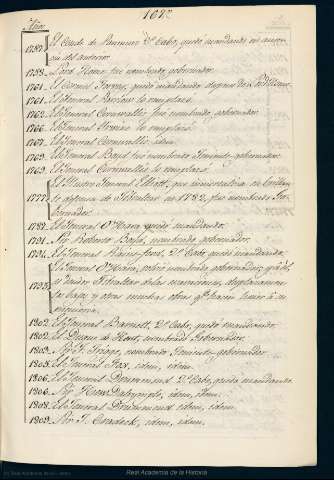 1622
Años
1757. El Conde de Panmure 2º Cabo, quedó mandando en ausen-
cia del anterior.
1758. Lord Home fué nombrado gobernador.
1761. El Coronel quedó mandando despues de
1761. El General Parslow le remplazó.
1762. El General Cornwallis, fué nombrado gobernador.
1766. El General Irwin le remplazó.
1767. El General Cornwallis, idem.
1769. El General Boyd fué nombrado Teniente gobernador.
1769. El General Cornwallis le remplazó.
El Ilustre General Elliott, que inmortalizó su brillan-
1777. te defensa de Gibraltar en 1782, fue nombrado Go-
bernador.
1787. El General O'Hara quedó mandando.
1791. Sir Roberto Boyd, nombrado gobernador.
1794. El General Rainsford, 2º Cabo, quedó mandando.
El General O'Hara, volvió nombrado gobernador,
1795. Gibraltar de las
y otras muchas obras qº hacen honor á su
ingenieria.
1802. El General Barnett, 2º Cabo, quedó mandando.
1802. El Duque de Kent, nombrado Gobernador.
1803. Sir T. Trigge, nombrado Teniente gobernador.
1805. El General Fox, idem, idem.
1806. El General Drummond 2º Cabo, quedó mandando.
1806. Sir Hew Dalrymple, idem, idem.
1808. El General Drummond idem, idem.
1809. Sir J. Cradock, idem, idem.
Real Academia de la Historia
(c) Real Academia de la Historia